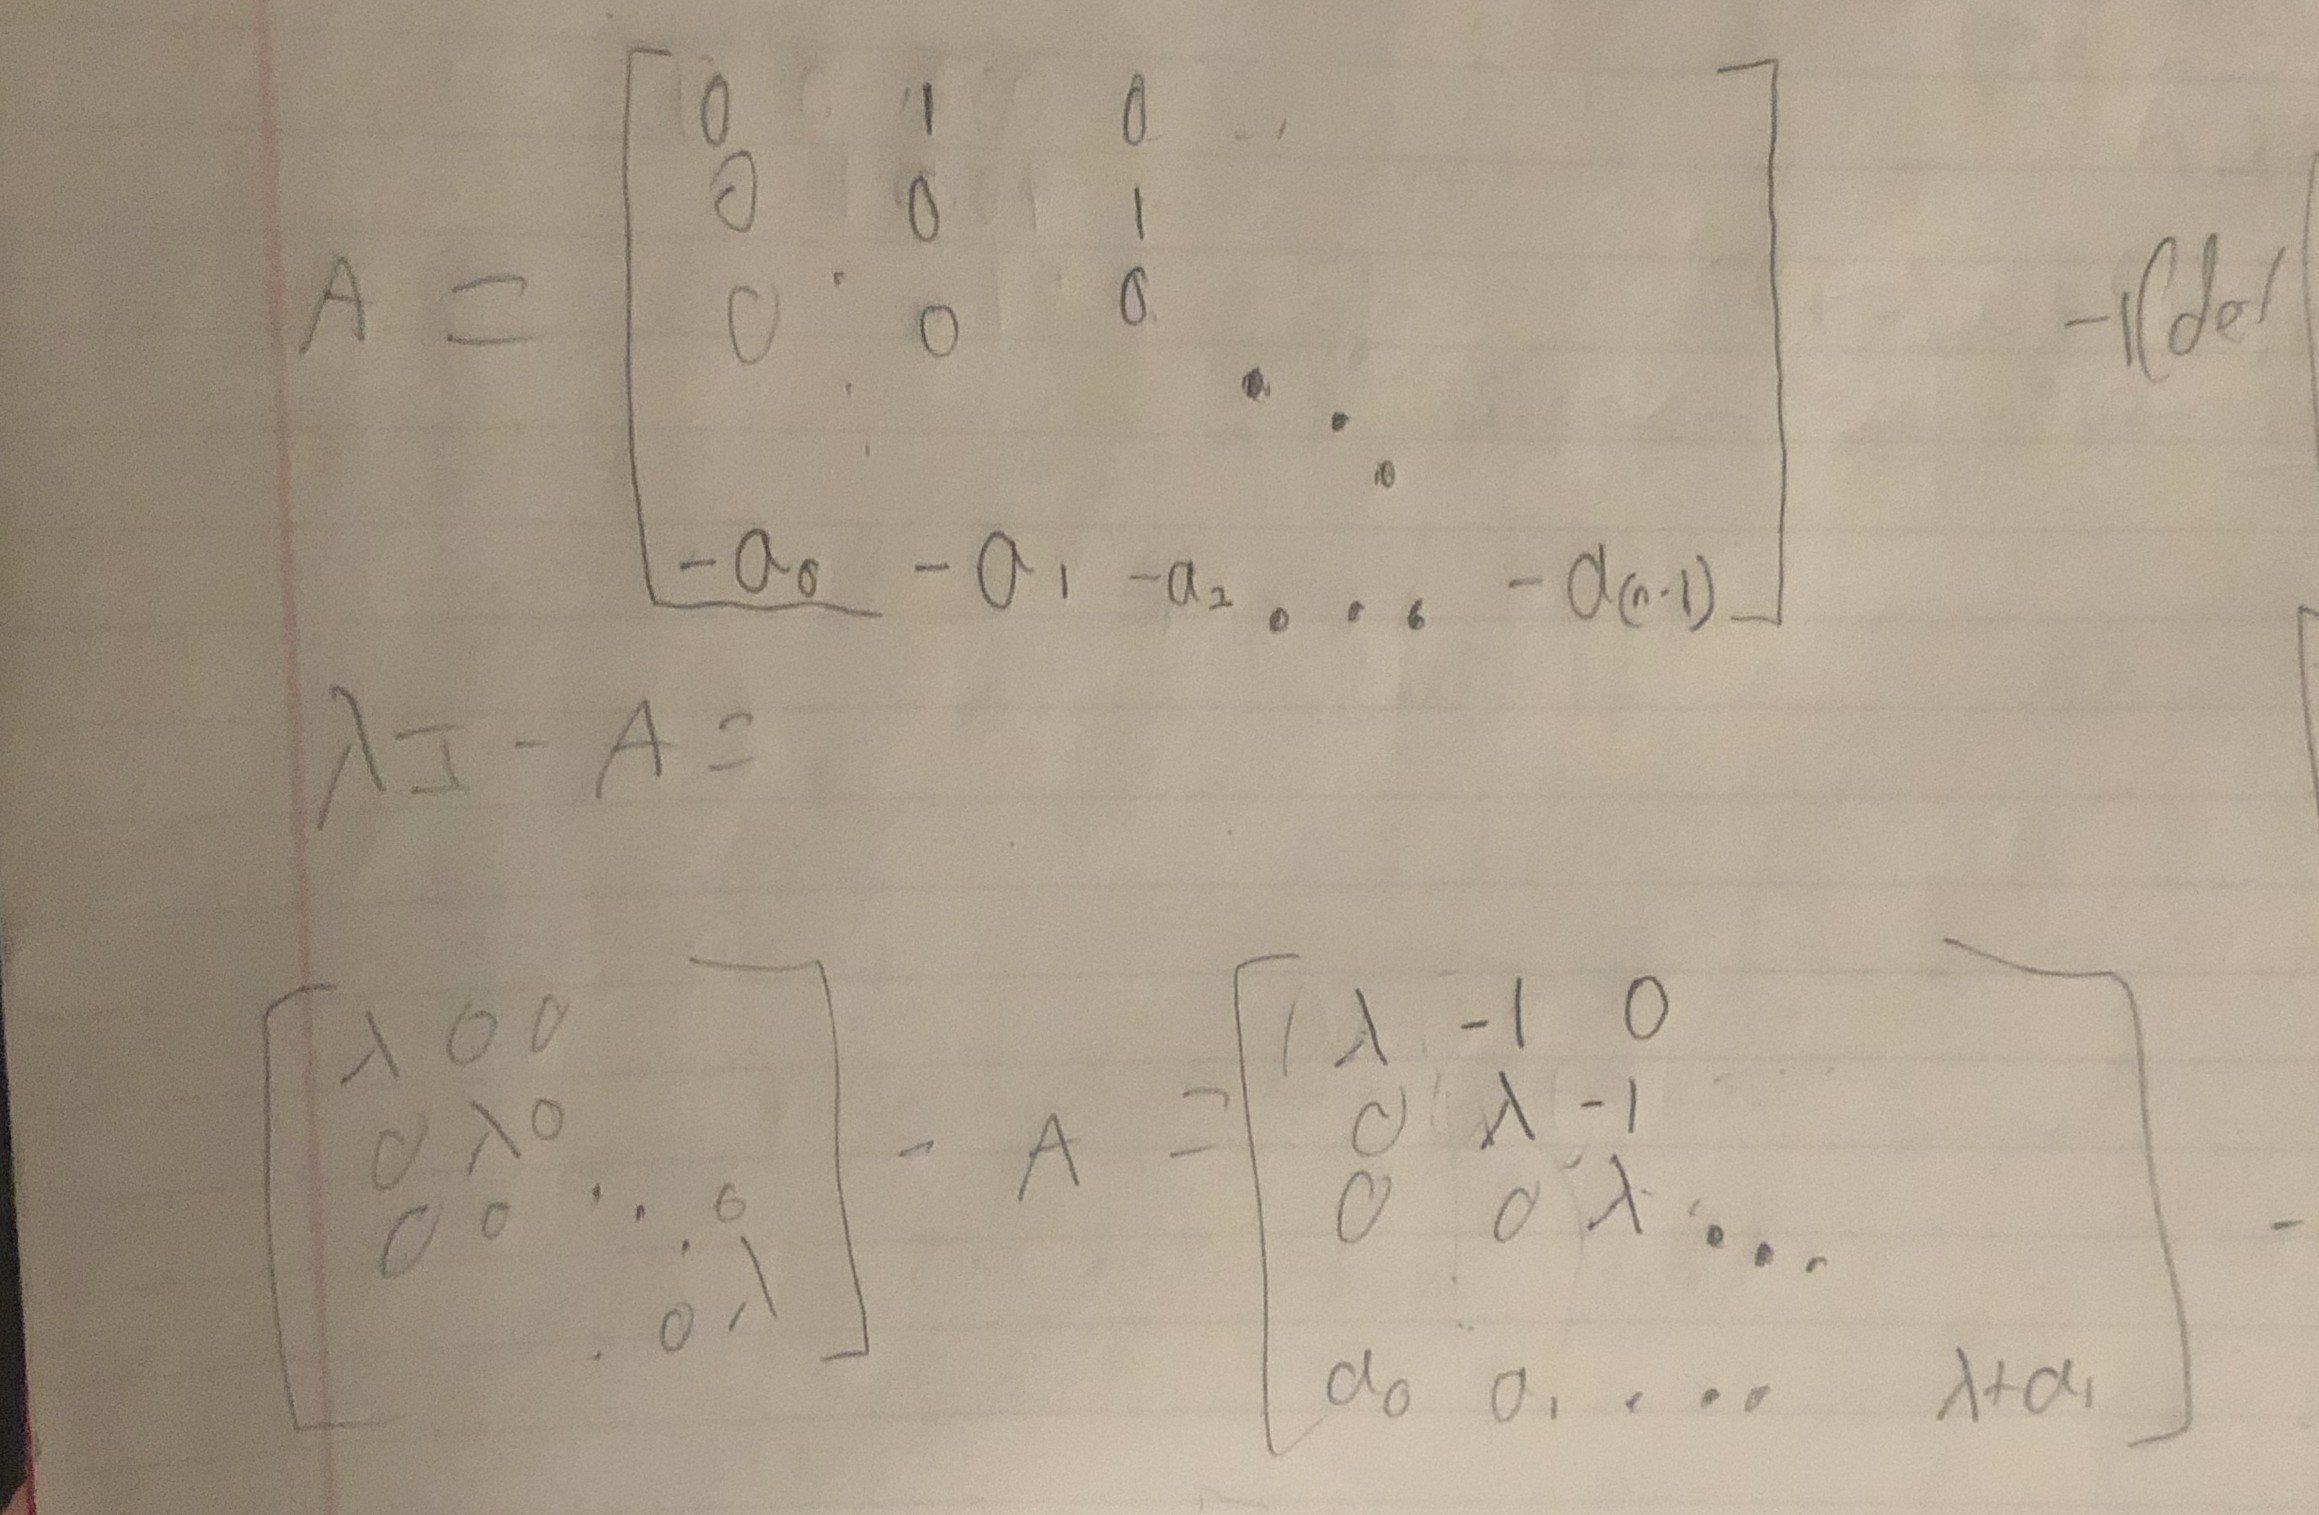 A = [ 0 1 0 ..
0 0 1
0 0 0
. . .
-a₀ -a₁ -a₂ . . . -a(n-1) ]
-1(det [
λI - A =
[ λ 0 0
0 λ 0
0 0 . . . 0
. 0 λ ] - A = [ λ -1 0
0 λ -1
0 0 λ . . .
a₀ a₁ . . . λ+a₁ ] -